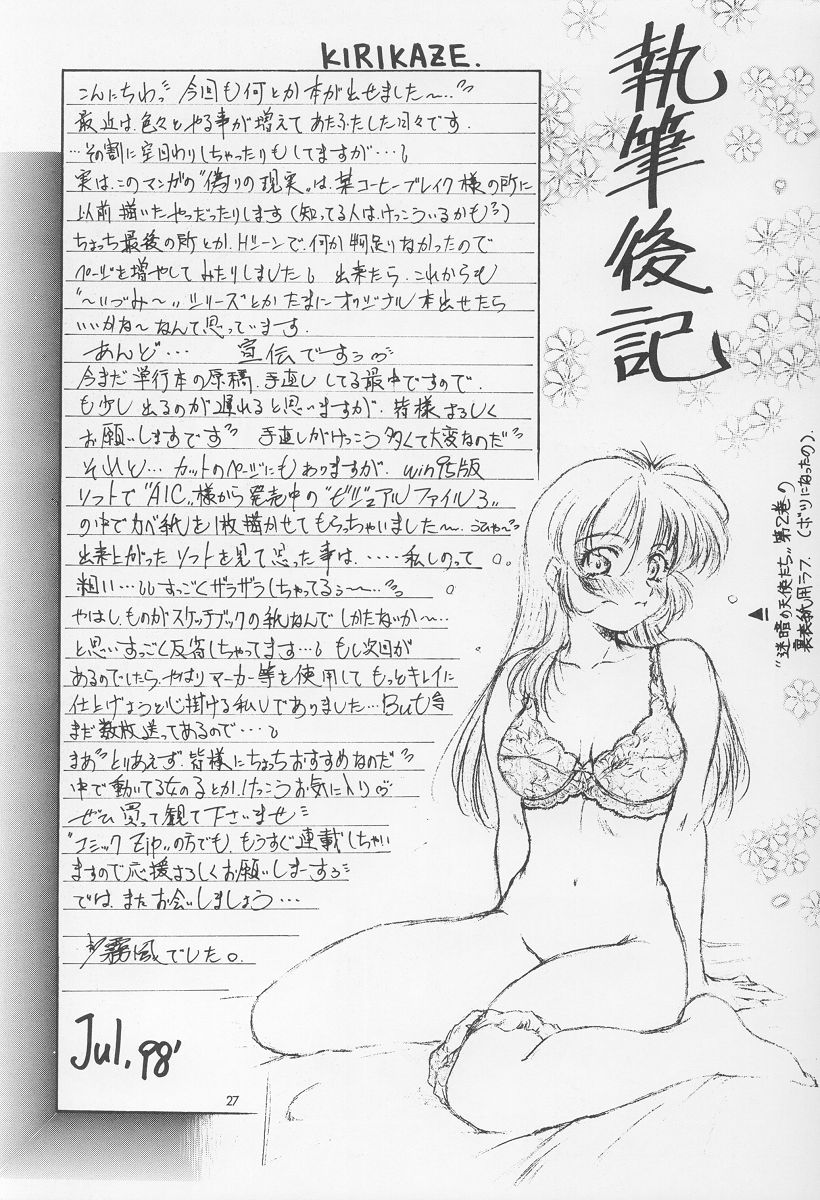 KIRIKAZE.
執筆後記
こんにちわっ 今回も何とか本が出せました〜…
最近は、色々とやる事が増えてあたふたした日々です。
…その割に空回りしちゃったりもしてますが…
実は、このマンガの"偽りの現実"は、某コーヒーブレイク様の所に
以前描いたやつだったりします(知ってる人は、けっこういるかも)
ちょっち最後の所とか、Hシーンで、何か物足りなかったので
ページを増やしてみたりしました 出来たら、これからも
"〜いづみ〜"シリーズとかたまにオリジナル本出せたら
いいかな〜なんて思っています。
あんど… 宣伝ですぅ
今まだ単行本の原稿、手直ししてる最中ですので、
も少し出るのが遅れると思いますが、皆様よろしく
お願いしますです 手直しがけっこう多くて大変なのだ
それと…カットのページにもありますが、win95版
ソフトで"AIC"様から発売中の"ビジュアルファイル3"
の中でカベ紙を1枚描かせてもらっちゃいました〜、うひゃ〜
出来上がったソフトを見て思った事は、‥‥私しのって
粗い…すっごくザラザラしちゃってるぅ〜…
やはし、ものがスケッチブックの紙なんでしかたないか〜…
と思いすっごく反省しちゃってます… もし次回が
あるのでしたら、やはりマーカー等を使用してもっとキレイに
仕上げようと心掛ける私しでありました…But
まだ数枚送ってあるので…
まあ とりあえず、皆様にちょっちおすすめなのだ
中で動いてる女のるとか、けっこうお気に入り
ぜひ買って観て下さいませ
"コミックZip"の方でも、もうすぐ連載しちゃい
ますので応援よろしくお願いしまーすぅ
では、またお会いしましょう…
霧風でした。
Jul. 98'
"迷暗の天使たち"第2巻の
裏表紙用ラフ.(ボツになったの).
27